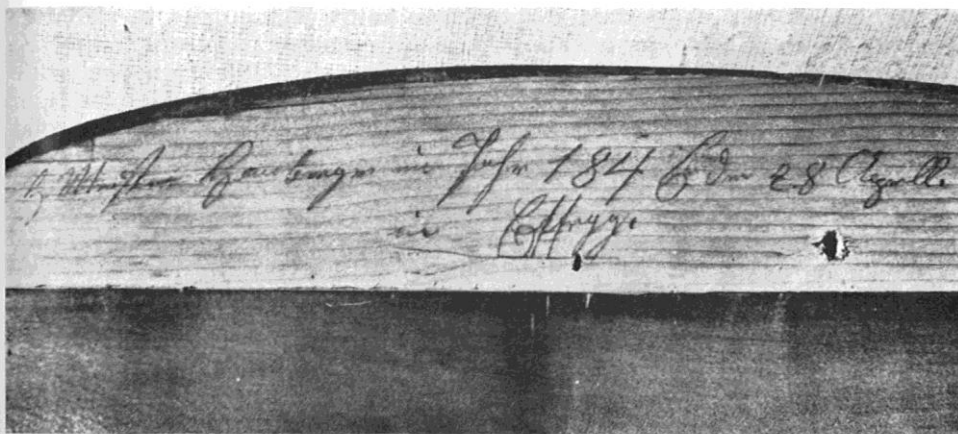 Meister in Jahr 1846 den 28 Aprill.
in Essegg.